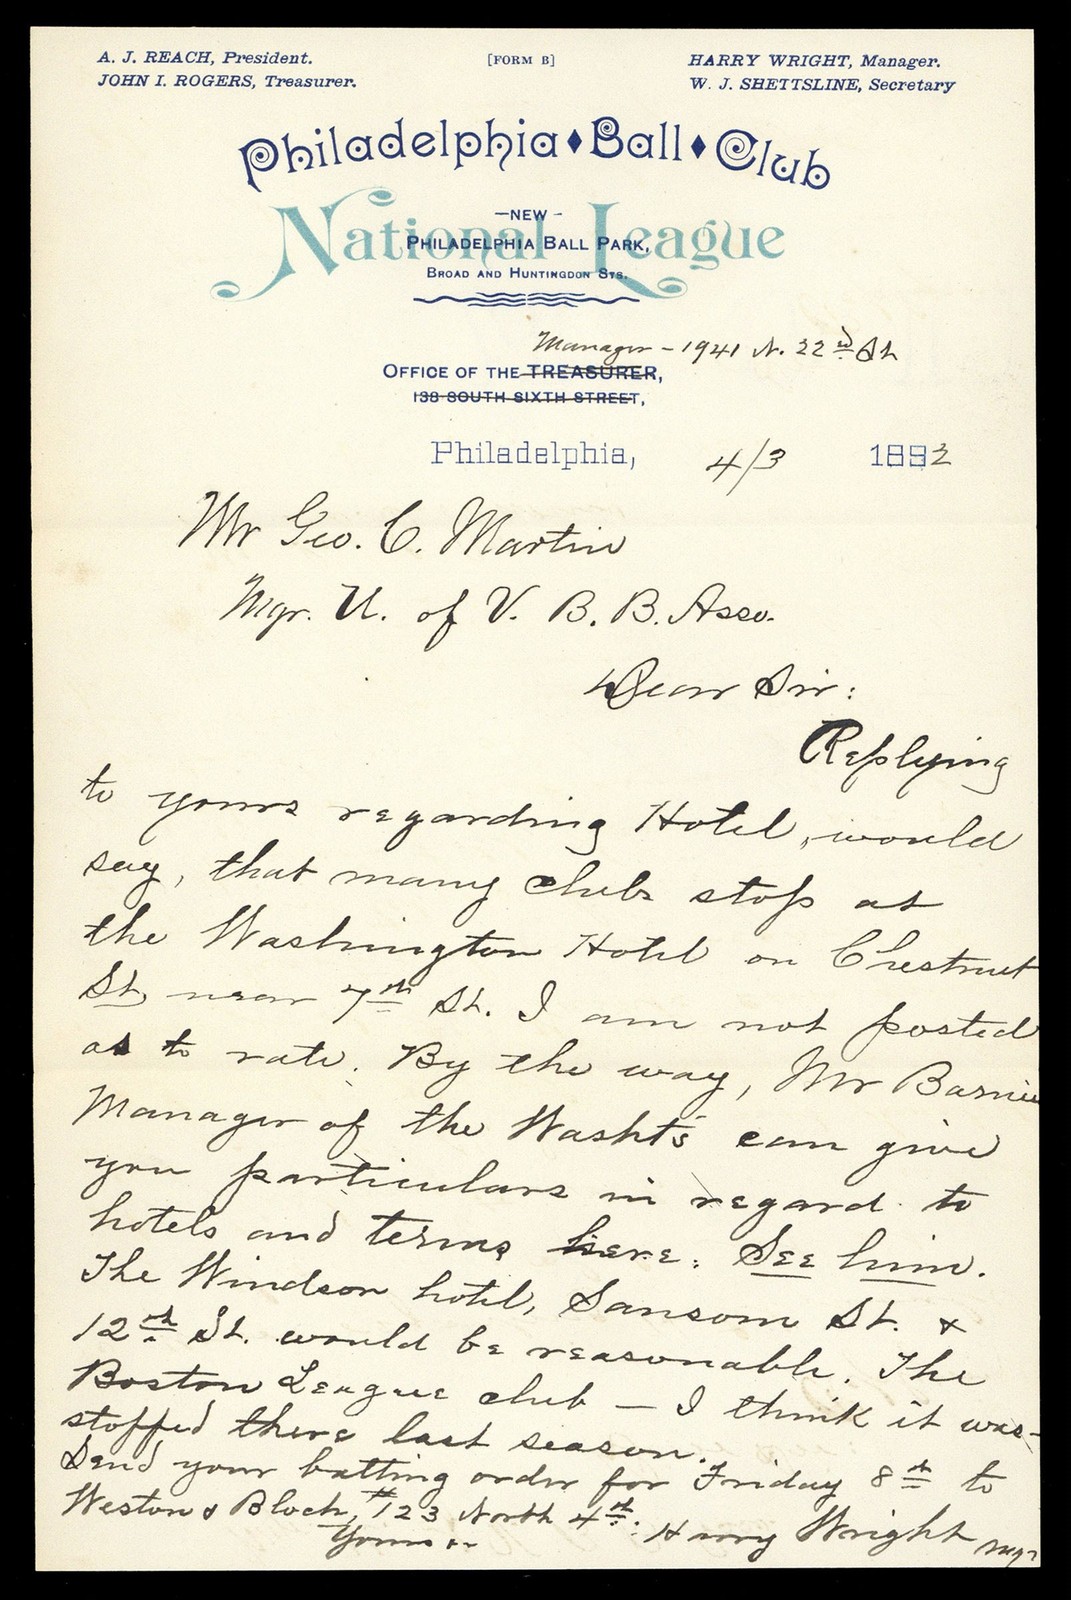 A. J. REACH, President.
JOHN I. ROGERS, Treasurer.
[FORM B]
HARRY WRIGHT, Manager.
W. J. SHETTSLINE, Secretary
Philadelphia ♦ Ball ♦ Club
National League
—NEW—
PHILADELPHIA BALL PARK,
BROAD AND HUNTINGDON STS.
Manager - 1941 N. 22nd St
OFFICE OF THE TREASURER,
138 SOUTH SIXTH STREET,
Philadelphia, 4/3 1892
Mr Geo. C. Martin
Mgr. U. of V. B. B. Asso.
Dear Sir:
Replying
to yours regarding Hotel, would
say, that many clubs stop at
the Washington Hotel on Chestnut
St, near 7th St. I am not posted
as to rate. By the way, Mr Barnie
Manager of the Washt's can give
you particulars in regard to
hotels and terms here. See him.
The Windsor hotel, Sansom St. &
12th St. would be reasonable. The
Boston League club — I think it was-
stopped there last season.
Send your batting order for Friday 8th to
Weston & Bloch, #123 North 4th.
Yours &c
Harry Wright Mgr